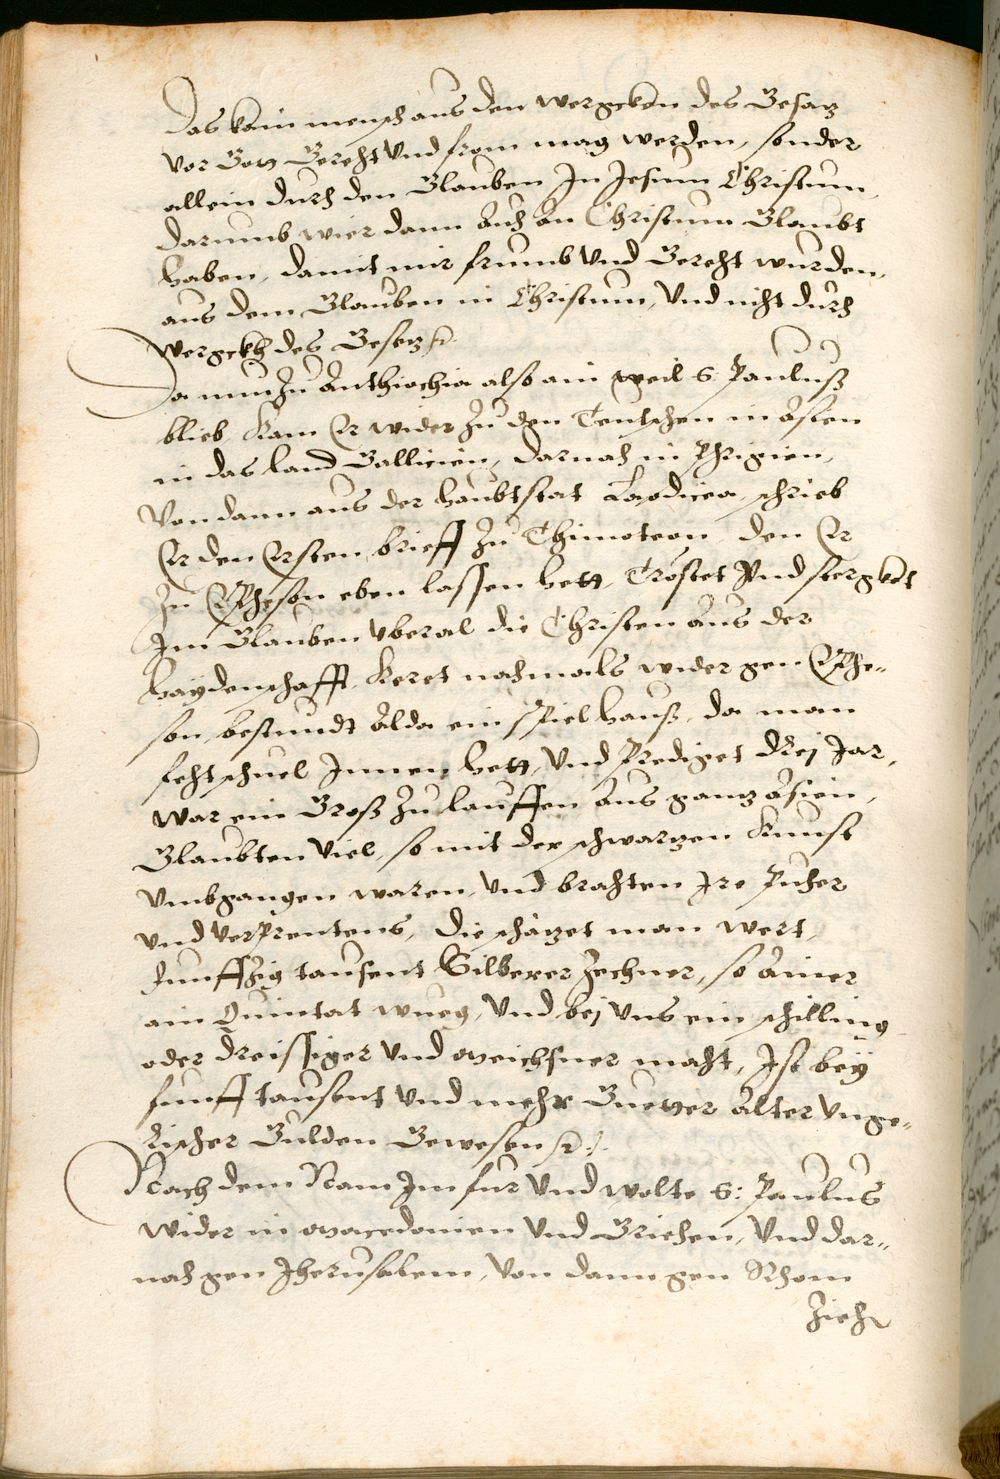 Das kain mensch aus den wergcken des Gesaz
vor Gott Gerecht Vnd from mag werden, sonder
allein durch den Glauben In Jesum Christum
darumb wier dann Auch an Christum Glaubt
haben, damit mir frumb Vnd Gerecht wurden,
aus dem Glauben in Christum, Vnd nicht durch
wergckh des Gesetz
Da nun Zu Anthiochia also ain weil S. Pauluß
blieb, Kam Er wider Zu den Teutschen in Asien
in das land Gallicien, darnach in Phrigien,
Von dann aus der haubtstat Laodicea, schrieb
Er den Ersten brieff Zu Thimoteon, den Er
Zu Epheson eben lassen hett, Tröstet Vnd stergckt
Im Glauben vberal die Christen Aus der
haydenschafft, Keret nachmals wider gen Ephe-
son, bestundt Alda ein spielhauß, da man
fechtschuel Innen hett, Vnd Prediget drej Jar,
war ein Groß Zu lauffen Aus gantz Asien,
Glaubten Viel, so mit der schwarzen Kunst
Vmbgangen waren, Vnd brachten Ire Pucher
Vnd Verprentens, die schäzet man wert,
funffzig tausent Silberer Zechner, so Ainer
ain Quintat wueg, Vnd bej Vns ein schilling
oder dreissiger Vnd Meichsner macht, Ist bey
funff tausent Vnd mehr Guetter Alter Vnge-
rischer Gulden Gewesen
Nach dem Nam Im fur Vnd wolte S: Paulus
wider in Macedonien Vnd Griechen, Vnd dar-
nach gen Jherusalem, Von dann gen Rhom
Ziehen